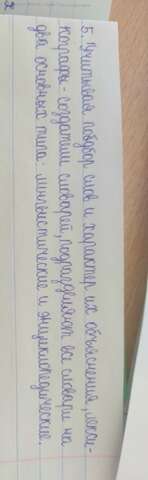 5. Учитывая подбор слов и характер их объяснения, лекси-
кографы - создатели словарей, подразделяют все словари на
два основных типа: лингвистические и энциклопедические.